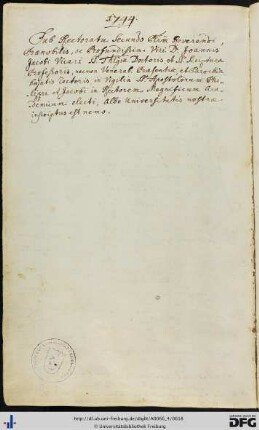 1744.
Sub Rectoratu Secundo Reverendi
Praenobilis, ac Profundissimi Viri D. Joannis
Jacobi Vicari SS. Thlgiae Doctoris et S. Scripturae
Professoris, necnon Venerab. Praesentiae et Parochiae
Rectoris in Vigilia SS. Apostolorum Phi-
lippi et Jacobi in Rectorem Magnificum Aca-
demicum electi, Albo Universitatis nostrae
inscriptus est nemo.
http://dl.ub.uni-freiburg.de/diglit/A0066_4/0018
© Universitätsbibliothek Freiburg
DFG